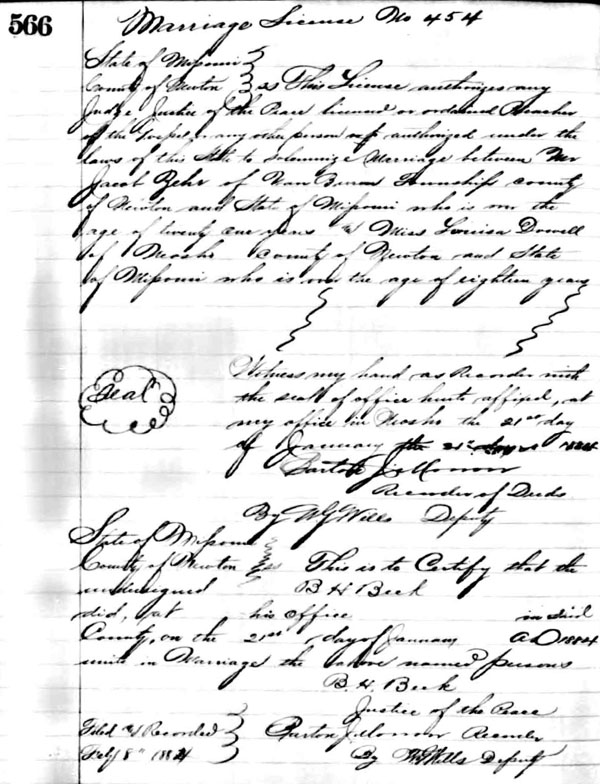 566
Marriage License No 454
State of Missouri
County of Newton ss This License authorizes any
Judge Justice of the Peace licensed or ordained Preacher
of the Gospel or any other person authorized under the
laws of this State to solemnize Marriage between Mr
Jacob Zehr of Van Buren Township county
of Newton and State of Missouri who is over the
age of twenty one years & Miss Louisa Dowell
of Neosho County of Newton and State
of Missouri who is over the age of eighteen years
Witness my hand as Recorder with
the seal of office hereto affixed, at
Seal
my office in Neosho the 21st day
of January 1884
Recorder of Deeds
By W G Wills Deputy
State of Missouri
County of Newton ss This is to Certify that the
undersigned B H Beck
did, at his office in said
County, on the 21st day of January AD 1884
unite in Marriage the above named persons
B. H. Beck
Justice of the Peace
Filed & Recorded Recorder
Feby 8th 1884 By W G Wills Deputy